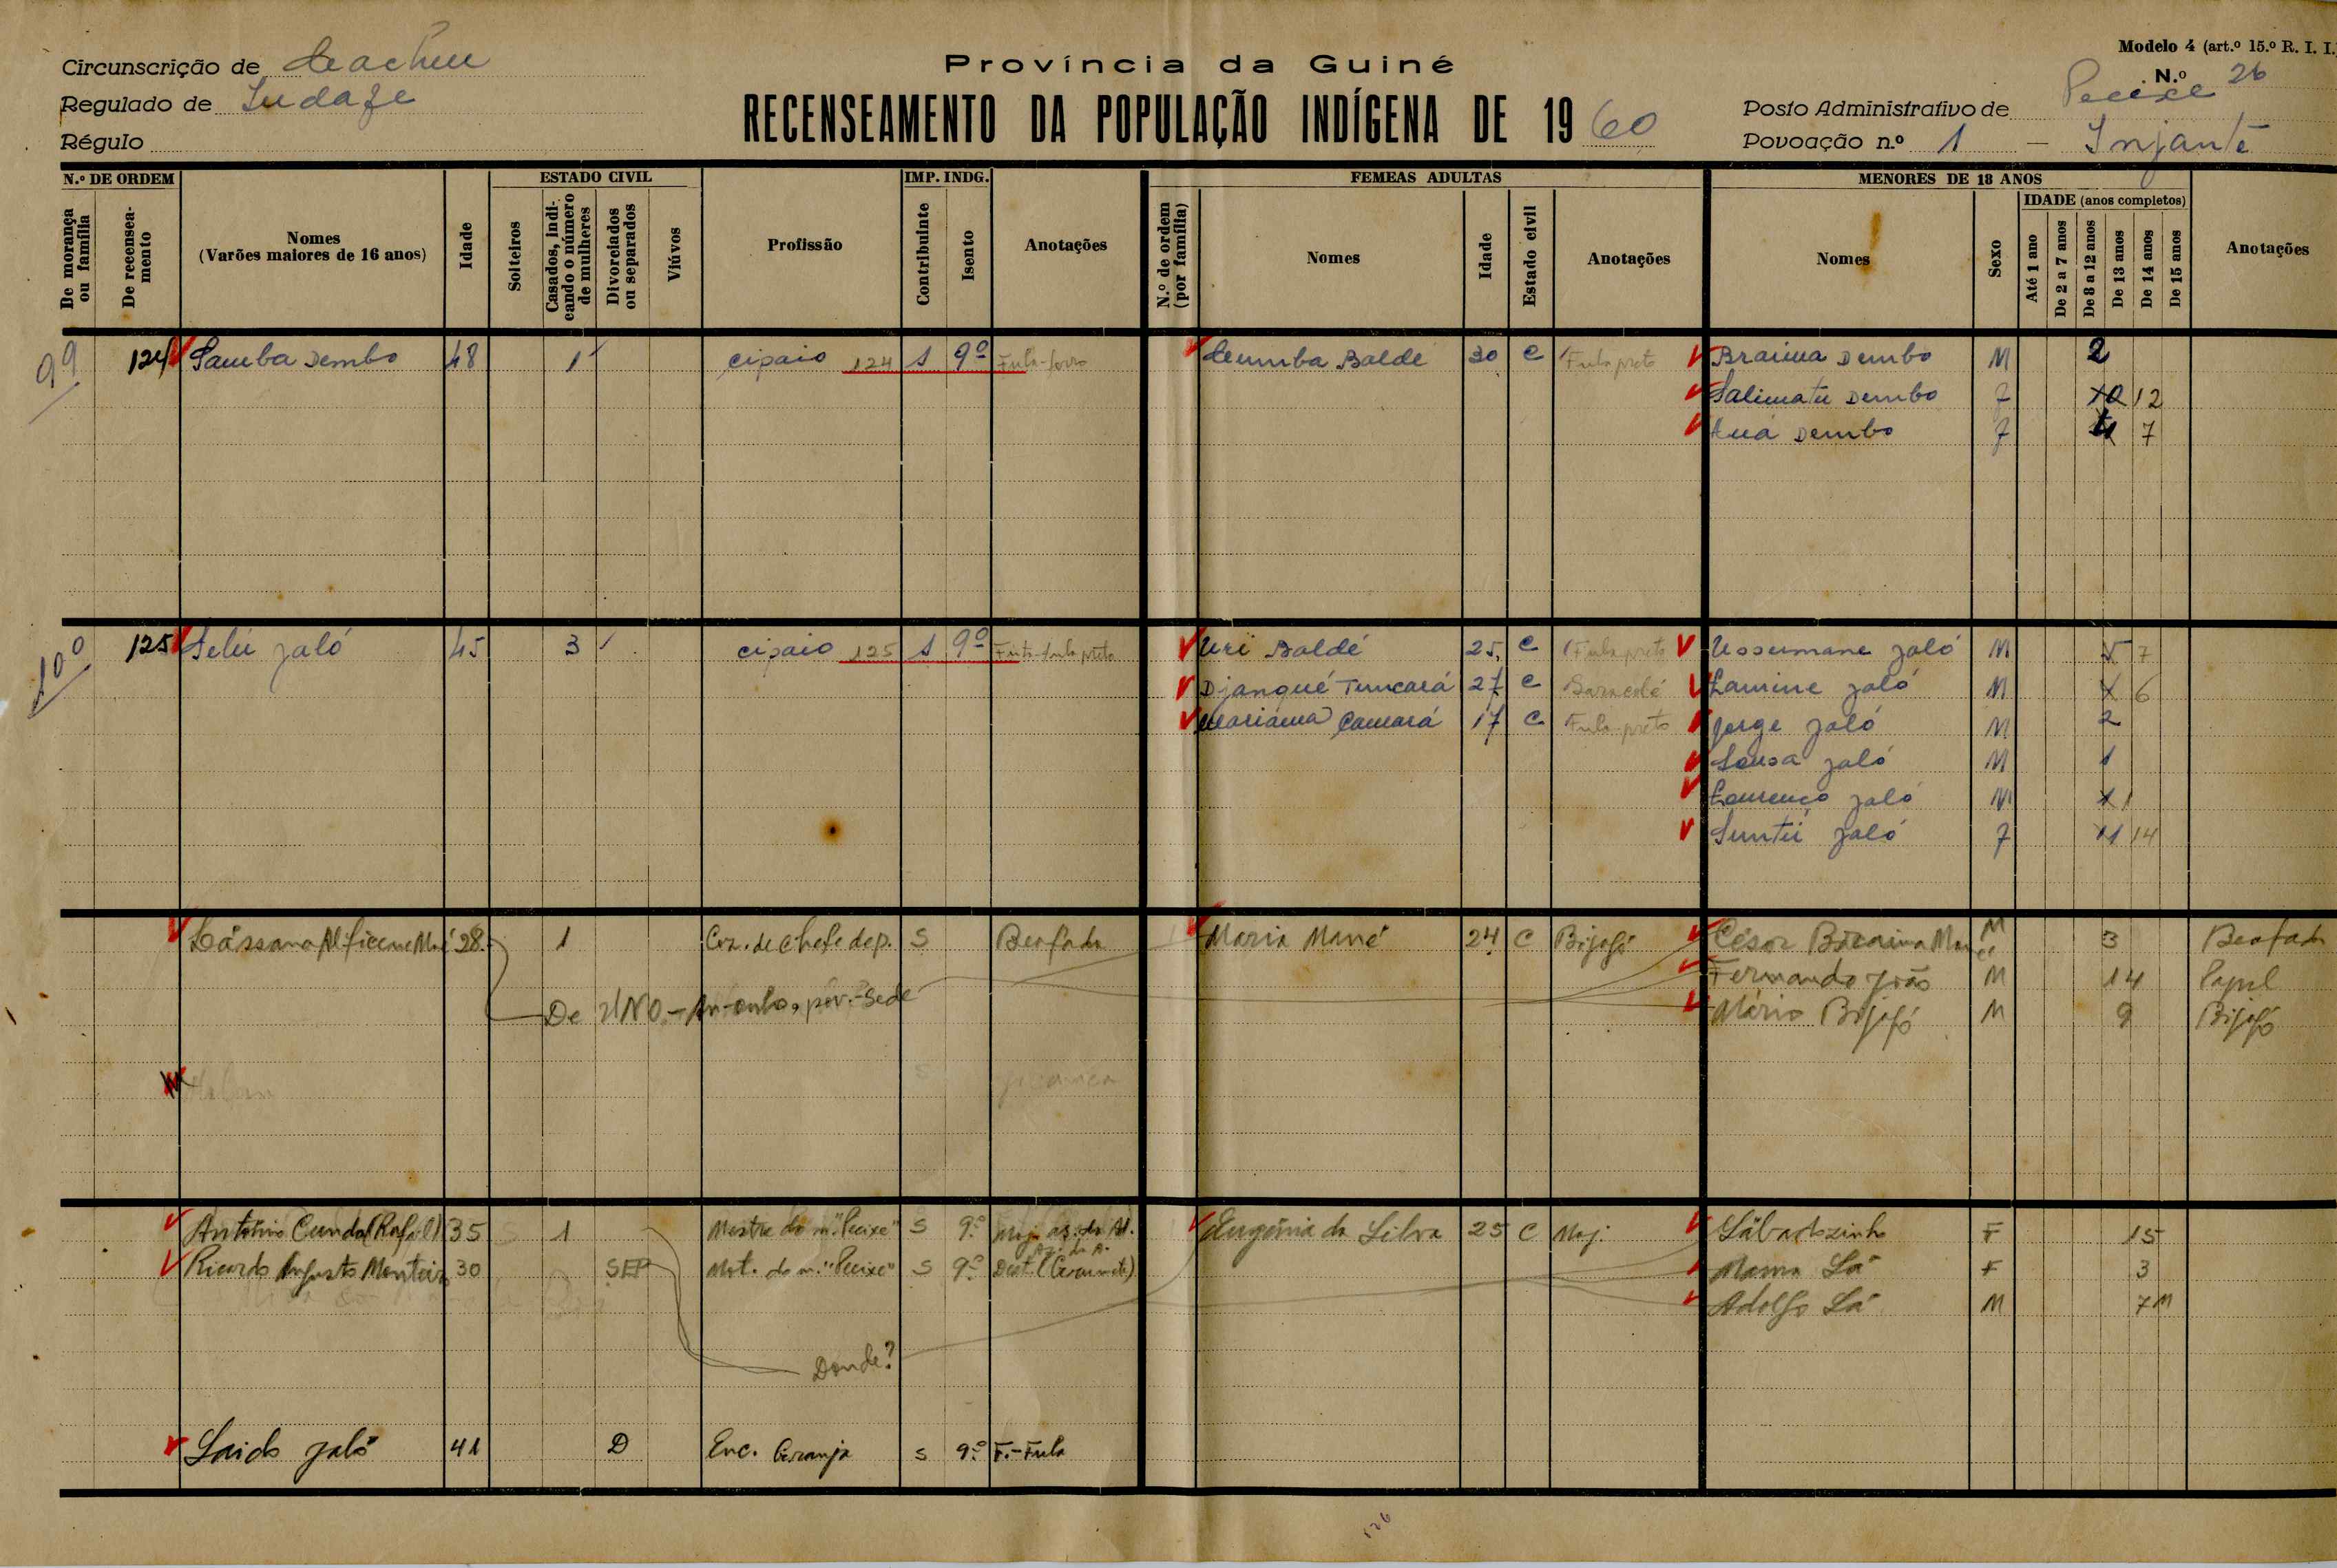 Modelo 4 (art.º 15.º R. I. I.)
Circunscrição de Cacheu
Província da Guiné
N.º 26
Regulado de
RECENSEAMENTO DA POPULAÇÃO INDÍGENA DE 1960
Posto Administrativo de Pecixe
Régulo
Povoação n.º 1 - Injante
N.º DE ORDEM
ESTADO CIVIL
IMP. INDG.
FEMEAS ADULTAS
MENORES DE 18 ANOS
De morança ou família
De recenseamento
Nomes
(Varões maiores de 16 anos)
Idade
Solteiros
Casados, indicando o número de mulheres
Divorciados ou separados
Viúvos
Profissão
Contribuinte
Isento
Anotações
N.º de ordem (por família)
Nomes
Idade
Estado civil
Anotações
Nomes
Sexo
IDADE (anos completos)
Até 1 ano
De 2 a 7 anos
De 8 a 12 anos
De 13 anos
De 14 anos
De 15 anos
Anotações
99 124 Samba Dembo 48 1 cipaio 124 s 9º Fula-forro Cumba Balde 30 C Fula preto Braima Dembo M 2
Salimatu Dembo F 10 12
Auá Dembo F 4 7
100 125 Selu Jaló 45 3 cipaio 125 s 9º Uri Baldé 25 C Fula preto Ussumane Jaló M 5 7
Djanqué Tuncará 27 C Saracolé Lamine Jaló M 6
Mariama Camará 17 C Fula-preto Jorge Jaló M 2
Sousa Jaló M 1
Lourenço Jaló M 1
Suntú Jaló F 11 14
Lássana 28 1 Coz. de Chefe de p. S Beafada Maria Mané 24 C Bijagó César Braima Mané M 3 Beafada
Fernando João M 14 Papel
De - pov.-Sede
Mário Bijagó M 9 Bijagó
António Cunda (Rafael) 35 1 Mestre do m. "Pecixe" S 9.º Eugénia da Silva 25 C Maj. Sábadozinho F 15
Ricardo Augusto Monteiro 30 SEP Mot. do m. "Pecixe" S 9.º Mama Sá F 3
Adolfo Sá M 7 M
Donde?
Saido Jaló 41 D Enc. Granja S 9.º F.-Fula
126